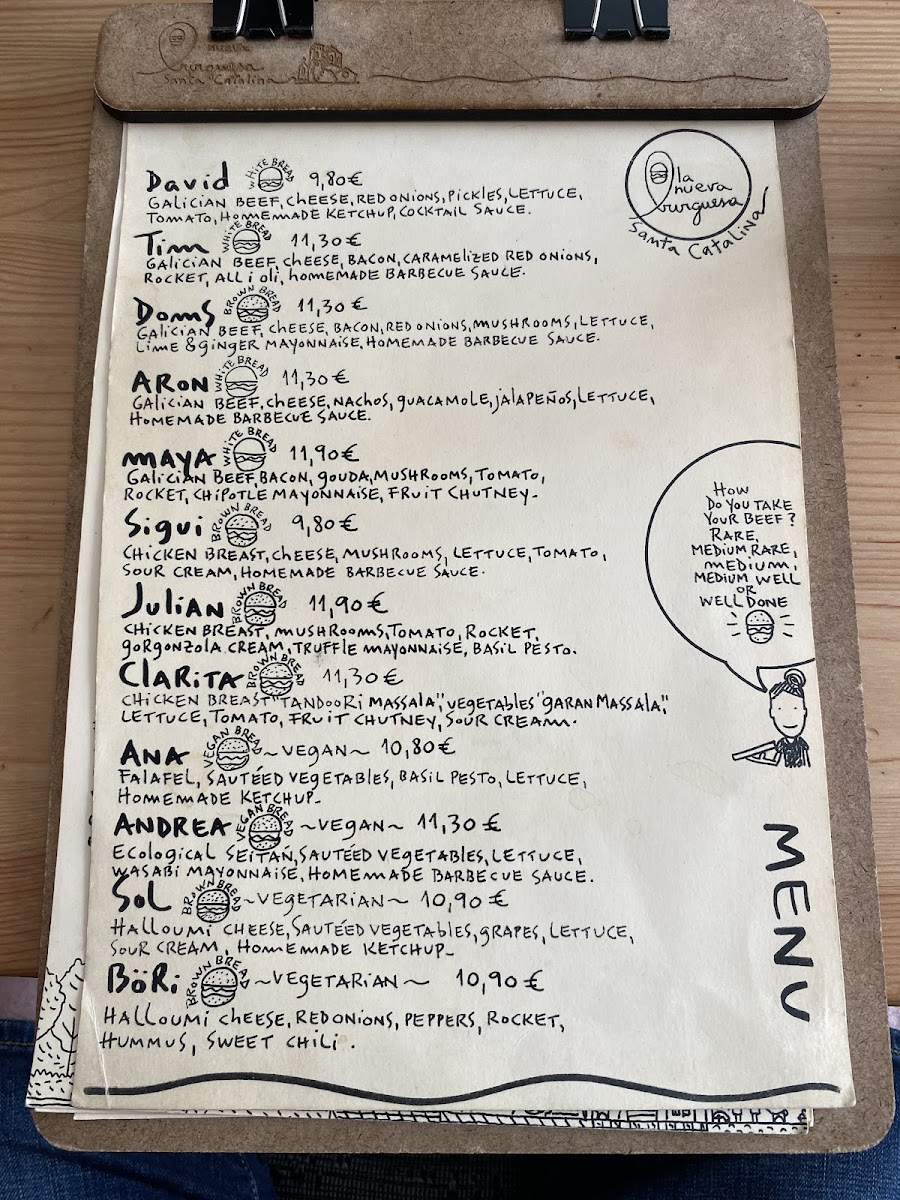 la nueva
burguesa
Santa Catalina
la
nueva
burguesa
Santa Catalina
David WHITE BREAD 9,80€
GALICIAN BEEF, CHEESE, RED ONIONS, PICKLES, LETTUCE,
TOMATO, HOMEMADE KETCHUP, COCKTAIL SAUCE.
Tim WHITE BREAD 11,30€
GALICIAN BEEF, CHEESE, BACON, CARAMELIZED RED ONIONS,
ROCKET, ALL i oli, HOMEMADE BARBECUE SAUCE.
DOMS BROWN BREAD 11,30€
GALICIAN BEEF, CHEESE, BACON, RED ONIONS, MUSHROOMS, LETTUCE,
LIME & GINGER MAYONNAISE, HOMEMADE BARBECUE SAUCE.
ARON WHITE BREAD 11,30€
GALICIAN BEEF, CHEESE, NACHOS, GUACAMOLE, JALAPEÑOS, LETTUCE,
HOMEMADE BARBECUE SAUCE.
MAYA WHITE BREAD 11,90€
GALICIAN BEEF, BACON, GOUDA, MUSHROOMS, TOMATO,
ROCKET, CHIPOTLE MAYONNAISE, FRUIT CHUTNEY-
Sigui BROWN BREAD 9,80€
CHICKEN BREAST, CHEESE, MUSHROOMS, LETTUCE, TOMATO,
SOUR CREAM, HOMEMADE BARBECUE SAUCE.
JULIAN BROWN BREAD 11,90€
CHICKEN BREAST, MUSHROOMS, TOMATO, ROCKET,
GORGONZOLA CREAM, TRUFFLE MAYONNAISE, BASIL PESTO.
CLARITA BROWN BREAD 11,30€
CHICKEN BREAST "TANDOORI MASSALA", VEGETABLES "GARAN MASSALA",
LETTUCE, TOMATO, FRUIT CHUTNEY, SOUR CREAM.
ANA VEGAN BREAD ~VEGAN~ 10,80€
FALAFEL, SAUTÉED VEGETABLES, BASIL PESTO, LETTUCE,
HOMEMADE KETCHUP-
ANDREA VEGAN BREAD ~VEGAN~ 11,30€
ECOLOGICAL SEITAŃ, SAUTÉED VEGETABLES, LETTUCE,
WASABI MAYONNAISE, HOMEMADE BARBECUE SAUCE.
SOL BROWN BREAD ~VEGETARIAN~ 10,90€
HALLOUMI CHEESE, SAUTÉED VEGETABLES, GRAPES, LETTUCE,
SOUR CREAM, HOMEMADE KETCHUP-
BÖRI BROWN BREAD ~VEGETARIAN~ 10,90€
HALLOUMI CHEESE, RED ONIONS, PEPPERS, ROCKET,
HUMMUS, SWEET CHILI.
HOW
DO YOU TAKE
YOUR BEEF?
RARE,
MEDIUM RARE,
MEDIUM,
MEDIUM WELL
OR
WELL DONE
MENU